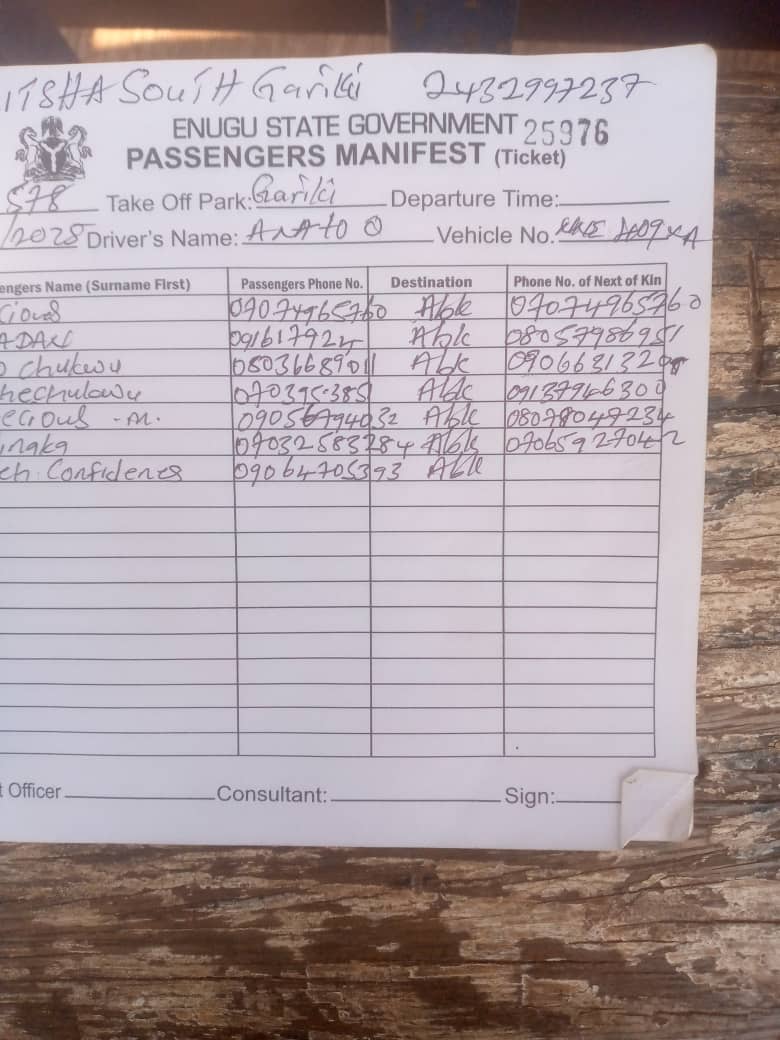 ITSHA SOUTH Gariki 2432997237
ENUGU STATE GOVERNMENT 25976
PASSENGERS MANIFEST (Ticket)
578 Take Off Park: Gariki Departure Time:
/2028 Driver's Name: ANATO O Vehicle No.
engers Name (Surname First) Passengers Phone No. Destination Phone No. of Next of Kin
cious 07074965760 Abk 07074965760
ADAKU 091617924 Abk 08057986951
o chukwu 08036689011 Abk 0906631320
hechukwu 070395385 Abk 09137946300
ecious - m. 09056794032 Abk 08078047234
inaka 07032583284 Abk 07065927042
ch. Confidence 09064705393 Abk
t Officer Consultant: Sign: